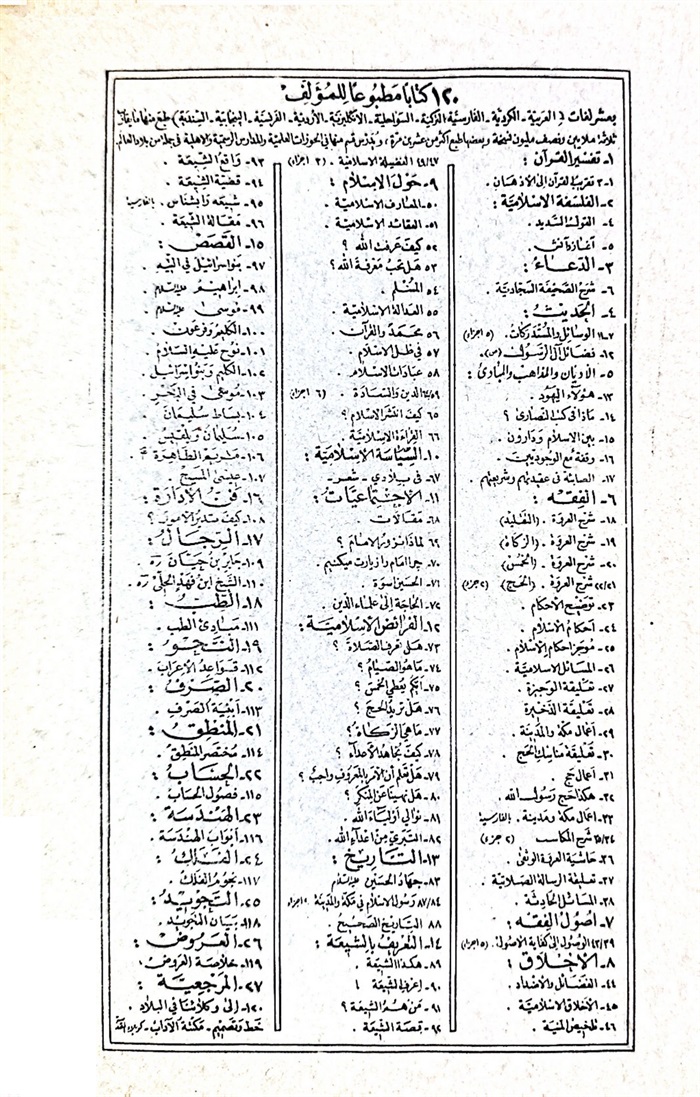 ١٢٠ كتابا مطبوعا للمؤلف
بعشر لغات ( العربية - الكردية - الفارسية - التركية - السواحلية - الانكليزية - الأردوية - الفرنسية - البنجابية - الهندية ) طبع منها ما يقارب
ثلاثة ملايين ونصف مليون نسخة وبعضها طبع أكثر من عشرين مرة ، ويدرس قسم منها في الحوزات العلمية والمدارس الرسمية والاهلية في جملة من بلاد العالم
١- تفسير القرآن :
١-٣ تقريب القرآن إلى الاذهان .
٢- الفلسفة الاسلامية :
٤- القول السديد .
٥-
٣- الدعاء :
٦- شرح الصحيفة السجادية .
٤- الحديث :
٧-١١ الوسائل والمستدركات . (٥ اجزاء)
١٢- فضائل آل الرسول (ص) .
٥- الأديان والمذاهب والمبادئ :
١٣- هؤلاء اليهود .
١٤- ماذا في كتب النصارى ؟
١٥- بين الاسلام ودارون .
١٦- وقفة مع الوجوديين .
١٧- الصابئة في عقيدتهم وشريعتهم .
٦- الفقه :
١٨- شرح العروة . (التقليد)
١٩- شرح العروة . (الزكاة)
٢٠- شرح العروة . (الخمس)
٢٢/٢١ شرح العروة . (الحج) (٢ جزء)
٢٣- توضيح الأحكام .
٢٤- أحكام الاسلام .
٢٥- موجز احكام الاسلام .
٢٦- المسائل الاسلامية .
٢٧- تعليقة الوجيزة
٢٨- تعليقة الذخيرة
٢٩- أعمال مكة والمدينة .
٣٠- تعليقة مناسك الحج .
٣١- أعمال حج .
٣٢- هكذا حج رسول الله .
٣٣- اعمال مكة ومدينة . بالفارسية
٣٥/٣٤ شرح المكاسب (٢ جزء)
٣٦- حاشية العروة الوثقى .
٣٧- تعليقة الرسالة الصلاتية .
٣٨- المسائل الحديثة .
٧- أصول الفقه :
٤٣/٣٩ الوصول إلى كفاية الاصول . (٥ اجزاء)
٨- الأخلاق :
٤٤- الفضائل والأضداد .
٤٥- الأخلاق الاسلامية .
٤٦- تلخيص المنية .
٤٩/٤٧ الفضيلة الاسلامية . (٣ اجزاء)
٩- حول الاسلام :
٥٠- المعارف الاسلامية .
٥١- العقائد الاسلامية .
٥٢ كيف عرفت الله ؟
٥٣ هل تحب معرفة الله ؟
٥٤ المسلم .
٥٥ العدالة الاسلامية .
٥٦ محمد والقرآن .
٥٧ في ظل الاسلام .
٥٨ عبادات الاسلام .
٦٤/٥٩ الدين والسعادة . (٦ اجزاء)
٦٥ كيف انتشر الاسلام ؟
٦٦ القراءة الاسلامية .
١٠- السياسة الاسلامية :
٦٧- في بلادي - شعر -
١١- الاجتماعيات :
٦٨- مقالات .
٦٩ لماذا نزور الامام ؟
٧٠- چرا امام را زيارت ميكنيم .
٧١- الحسين اسوة .
٧٢- الحاجة إلى علماء الدين .
١٢- الفرائض الاسلامية :
٧٣- هل تعرف الصلاة ؟
٧٤- ما هو الصيام ؟
٧٥- أيكم يعطي الخمس ؟
٧٦- هل تريد الحج ؟
٧٧- ما هي الزكاة ؟
٧٨- كيف نجاهد الأعداء ؟
٧٩- هل تعلم أن الأمر بالمعروف واجب ؟
٨٠- هل نهيت عن المنكر ؟
٨١- توالي أولياء الله .
٨٢- التبري من اعداء الله .
١٣- التاريخ :
٨٣- جهاد الحسين عليه السلام
٨٧/٨٤ رسول الاسلام في مكة والمدينة . اجزاء
٨٨ التاريخ الصحيح .
١٤- التعريف بالشيعة :
٨٩- هكذا الشيعة .
٩٠- إعرف الشيعة !
٩١- من هم الشيعة ؟
٩٢- قصة الشيعة .
٩٣- واقع الشيعة .
٩٤- قضية الشيعة .
٩٥- شيعه را بشناس . بالفارسية
٩٦- مقالة الشيعة .
١٥- القصص :
٩٧- بنو اسرائيل في التيه .
٩٨- ابراهيم عليه السلام .
٩٩- موسى عليه السلام .
١٠٠- الكليم وفرعون .
١٠١- نوح عليه السلام .
١٠٢- الكليم وبنو اسرائيل .
١٠٣- موسى في البحر .
١٠٤- بساط سليمان .
١٠٥- سليمان وبلقيس .
١٠٦- مريم الطاهرة
١٠٧- عيسى المسيح .
١٦- فن الإدارة :
١٠٨- كيف تدير الأمور ؟
١٧- الرجال :
١٠٩- جابر بن حيان ره .
١١٠- الشيخ ابن فهد الحلي ره .
١٨- الطب :
١١١- مبادئ الطب .
١٩- النحو :
١١٢- قواعد الإعراب .
٢٠- الصرف :
١١٣- أبنية الصرف .
٢١- المنطق :
١١٤- مختصر المنطق .
٢٢- الحساب :
١١٥- فصول الحساب .
٢٣- الهندسة :
١١٦- أبواب الهندسة .
٢٤- الفلك :
١١٧- نجوم الفلك .
٢٥- التجويد :
١١٨- بيان التجويد .
٢٦- العروض :
١١٩- خلاصة العروض .
٢٧- المرجعية :
١٢٠- إلى وكلائنا في البلاد .
خط وتصميم - مكتبة الآداب - كربلاء